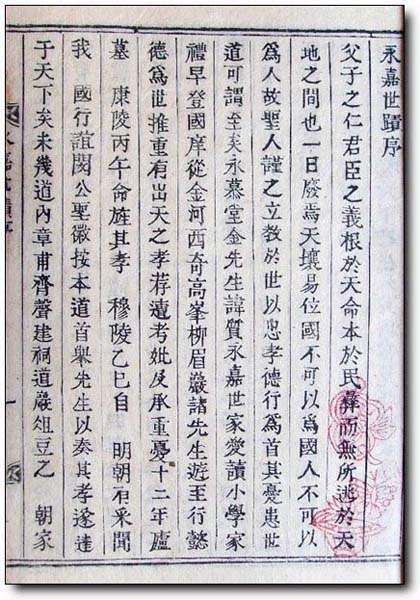 永嘉世蹟序
父子之仁君臣之義根於天命本於民彝而無所逃於天
地之間也一日廢焉天壤易位國不可以爲國人不可以
爲人故聖人謹之立教於世以忠孝德行爲首其憂患世
道可謂至矣永慕堂金先生諱質永嘉世家愛讀小學家
禮早登國庠從金河西奇高峯柳眉巖諸先生遊至行懿
德爲世推重有出天之孝荐遭考妣及承重憂十二年廬
墓 康陵丙午命旌其孝 穆陵乙巳自 明朝有采聞
我 國行誼閔公聖徽按本道首舉先生以奏其孝遂達
于天下矣未幾道內章甫齊聲建祠道巖俎豆之 朝家